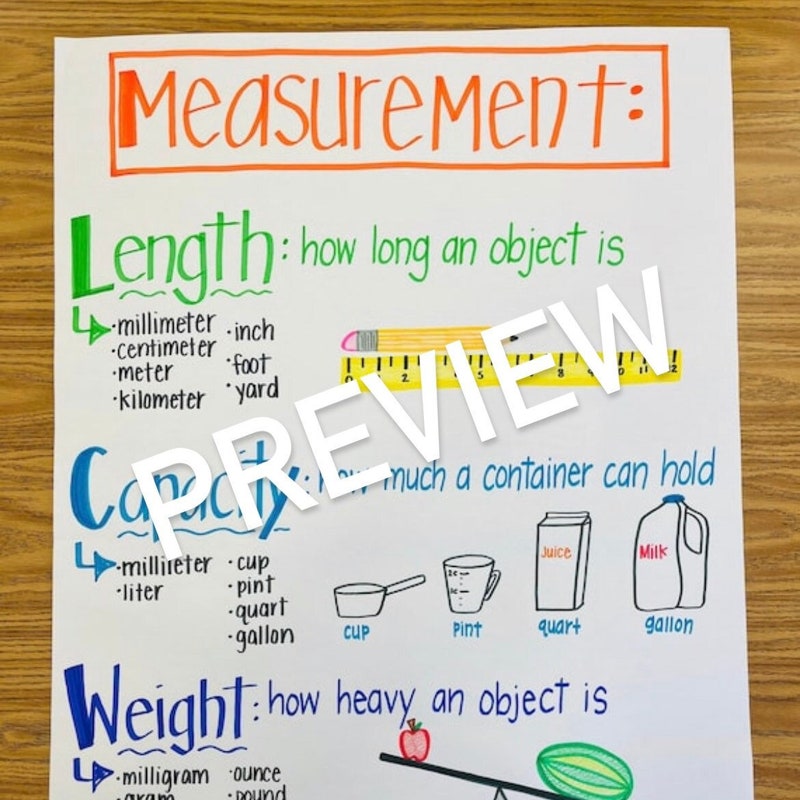 Measurement:
Length: how long an object is
·millimeter
·centimeter
·meter
·kilometer
·inch
·foot
·yard
0 2 5 8 11 12
PREVIEW
Capacity: how much a container can hold
·millireter
·liter
·cup
·pint
·quart
·gallon
2C
1C
Juice
Milk
cup
pint
quart
gallon
Weight: how heavy an object is
·milligram
·gram
·ounce
·pound